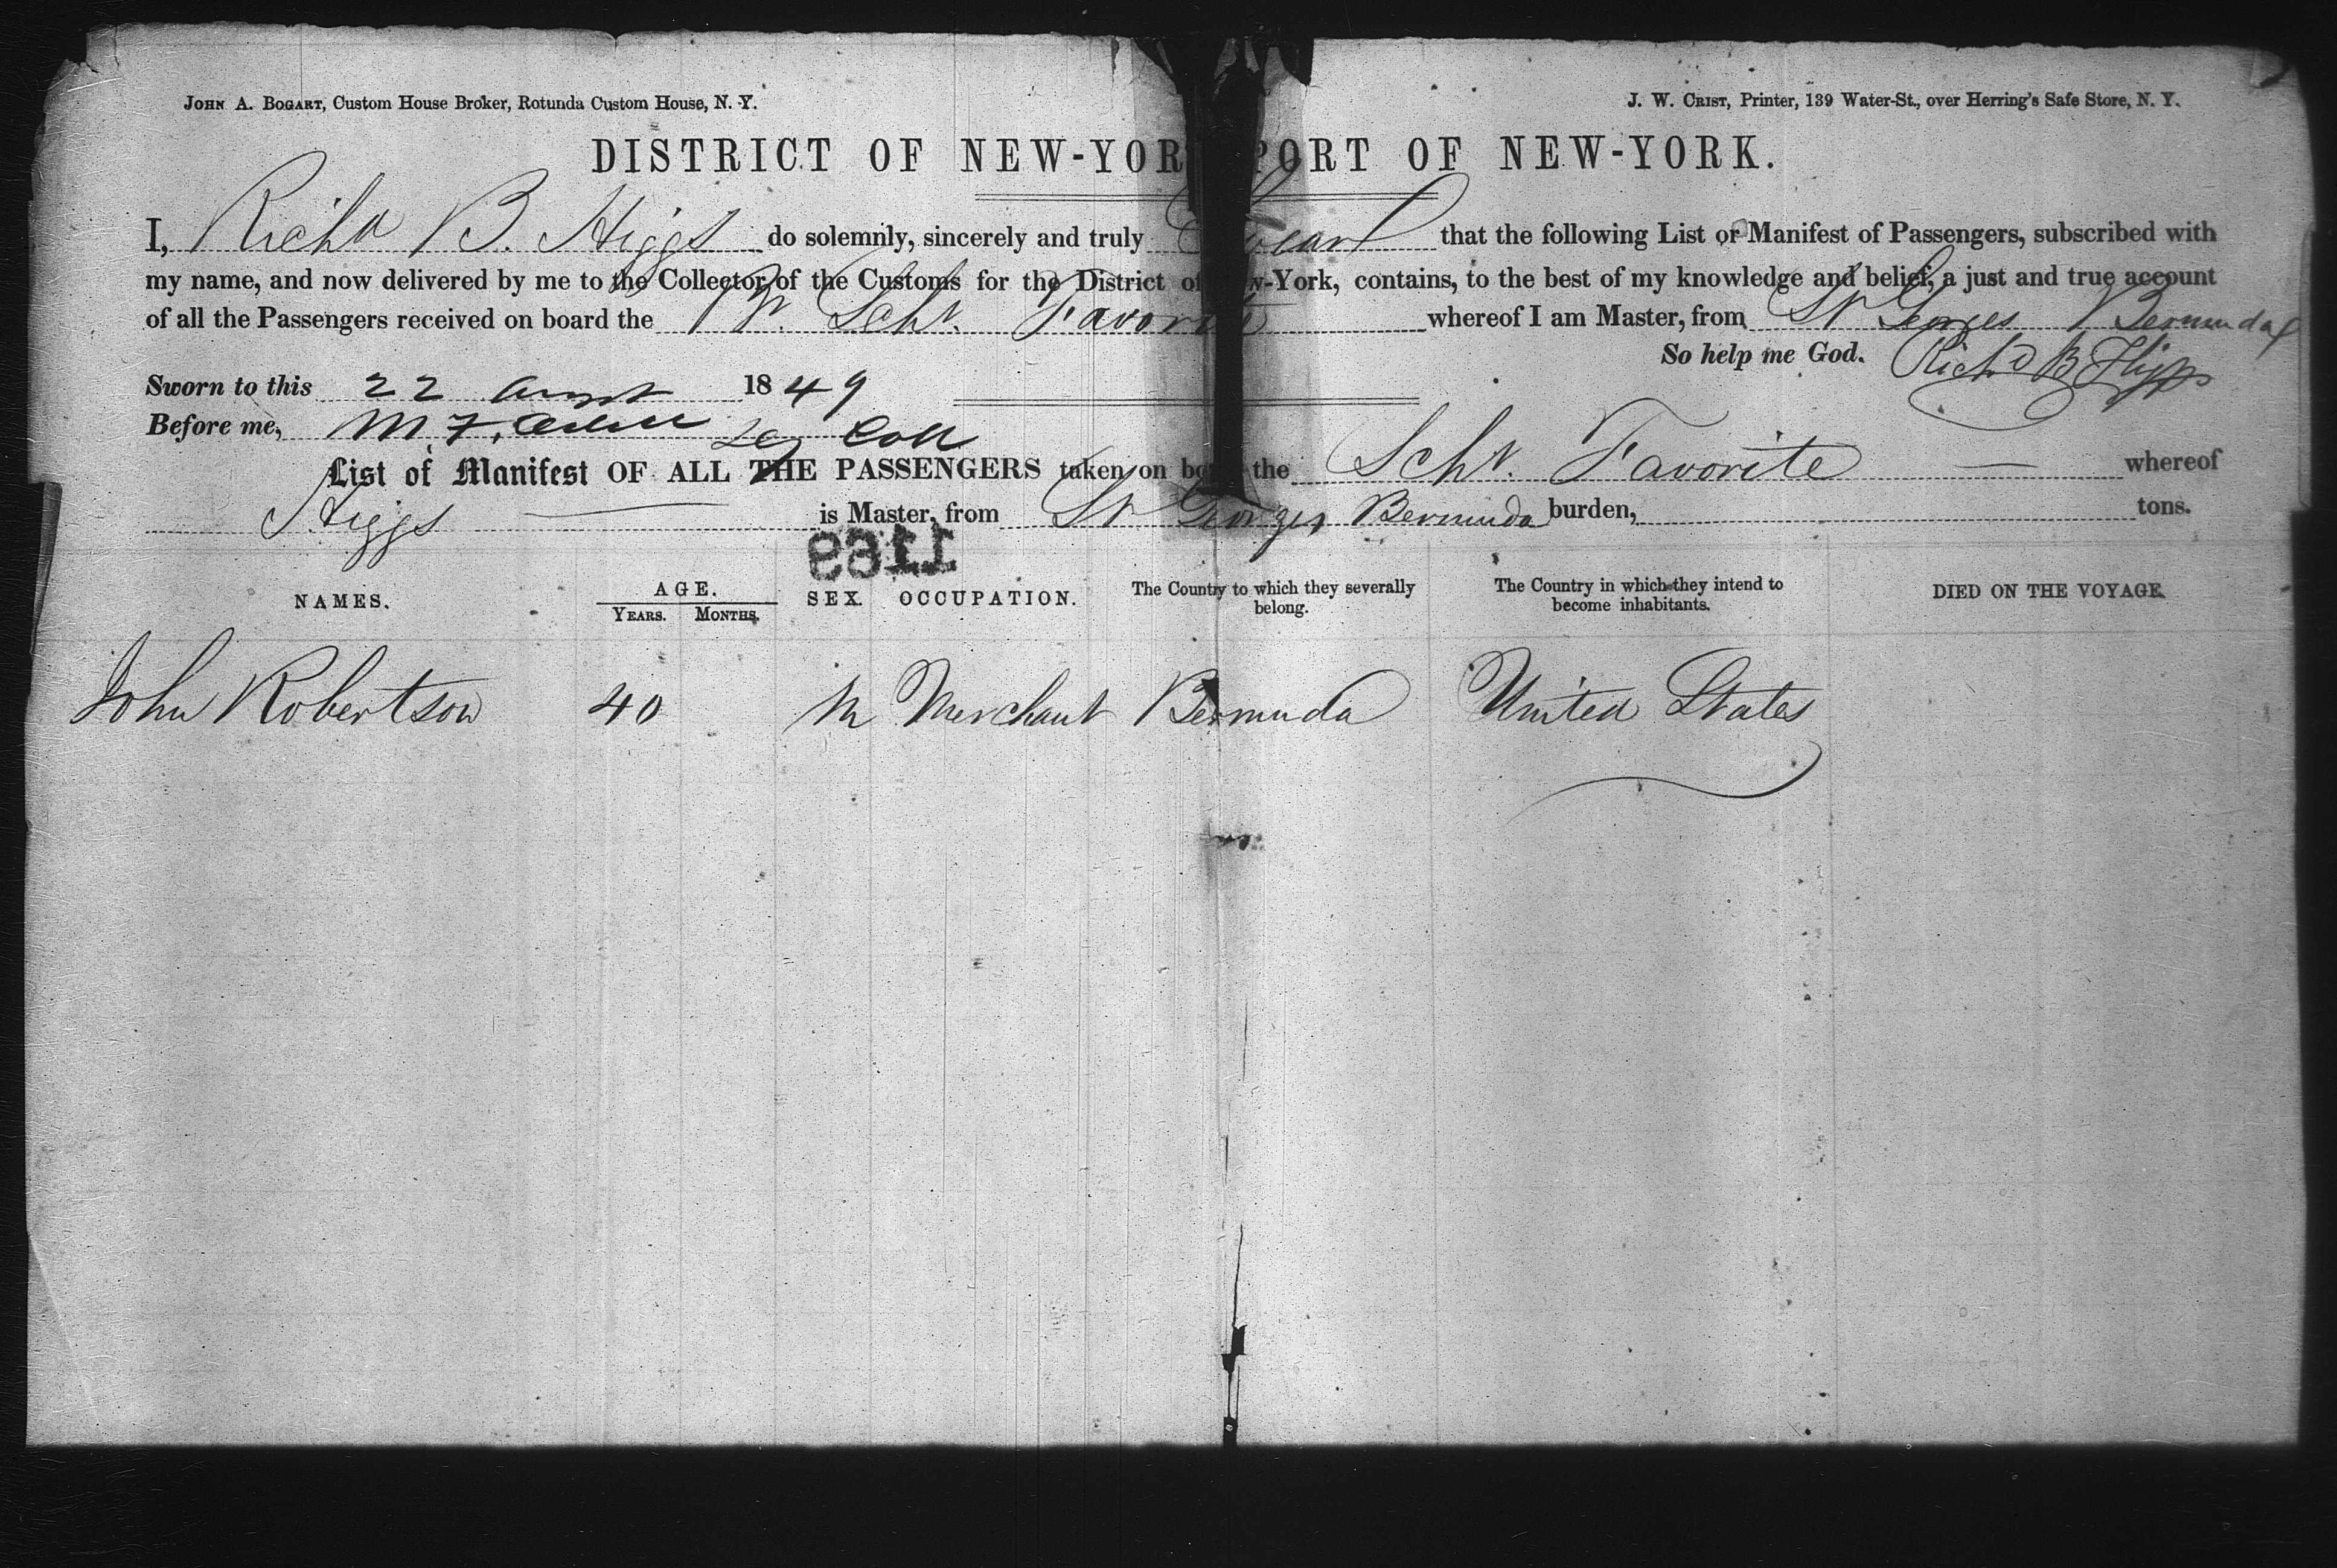 JOHN A. BOGART, Custom House Broker, Rotunda Custom House, N. Y.
J. W. CRIST, Printer, 139 Water-St., over Herring's Safe Store, N. Y.
DISTRICT OF NEW-YOR PORT OF NEW-YORK.
I, Richd B. Higgs do solemnly, sincerely and truly Swear that the following List or Manifest of Passengers, subscribed with
my name, and now delivered by me to the Collector of the Customs for the District of w-York, contains, to the best of my knowledge and belief, a just and true account
of all the Passengers received on board the Br. Schr. Favorite whereof I am Master, from St Georges Bermuda
So help me God. Richd B Higgs
Sworn to this 22 1849
Before me, M. F. Coll
List of Manifest OF ALL THE PASSENGERS taken on bo the Schr. Favorite — whereof
Higgs — is Master, from St Georges Bermuda burden, tons.
1169
NAMES. AGE. YEARS. MONTHS. SEX. OCCUPATION. The Country to which they severally belong. The Country in which they intend to become inhabitants. DIED ON THE VOYAGE.
John Robertson 40 M Merchant Bermuda United States